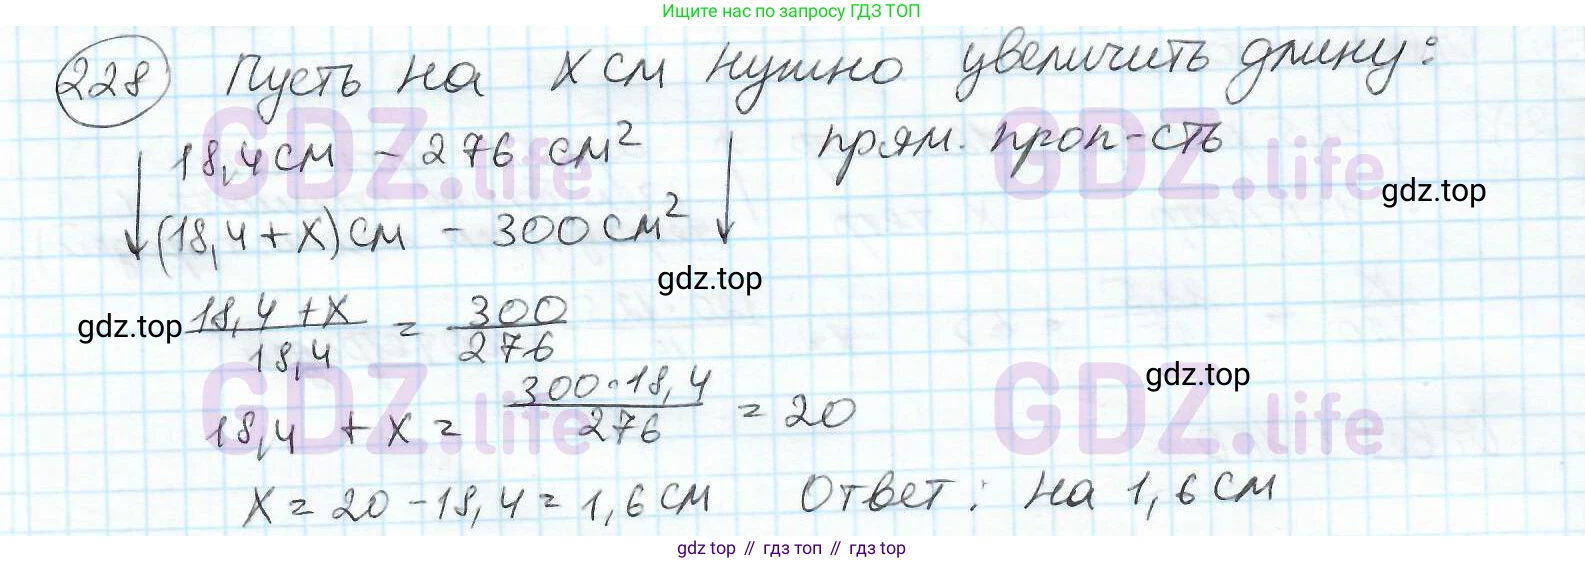 Ищите нас по запросу ГДЗ ТОП
228 Пусть на x см нужно увеличить длину:
18,4 см - 276 см² прям. проп-сть
GDZ.life GDZ.life
gdz.top
(18,4+x) см - 300 см²
gdz.top
gdz.top
18,4+x / 18,4 = 300 / 276
gdz.top
GDZ.life GDZ.life
18,4 + x = 300·18,4 / 276 = 20
x = 20 - 18,4 = 1,6 см Ответ: на 1,6 см
gdz top // гдз топ // gdz top